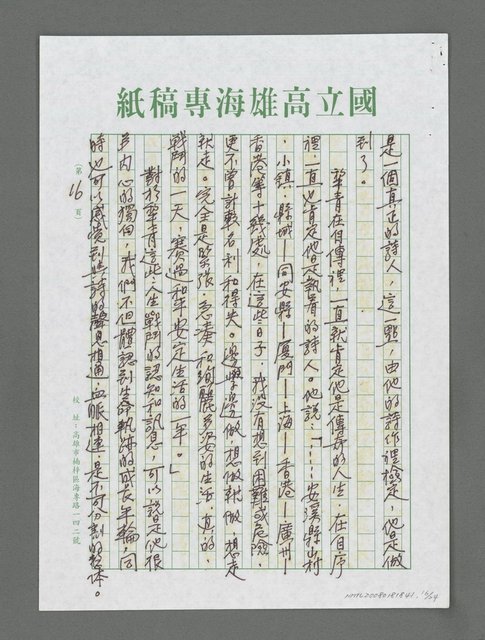 國立高雄海專稿紙
是一個真正的詩人，這一點，由他的詩作裡檢定，他是做
到了。
華青在自傳裡，一直就肯定他是傳奇的人生，在自序
裡，直也肯定他是執着的詩人。他說：「……安溪縣山村
，小鎮，縣城——同安縣——廈門——上海——香港——廣州——
香港等十幾處，在這些日子，我沒有想到困難或危險，
更不曾計較名利和得失。邊學邊做，想做就做，想走
就走。完全是緊張，急湊和絢麗多姿的生活，真的，
戰鬥的一天，賽過和平安定生活的一年。」
對於華青這些人生戰鬥的認知和訊息，可以說是他根
內心的獨白，我們不但體認到生命執跡的成長年輪，同
時也可以感境到與詩的聲息相通，血脈相連，是不可分割的整體。
（第 16 頁）
校 址：高雄市楠梓區海專路一四二號
NMTL20080181841, 16/24